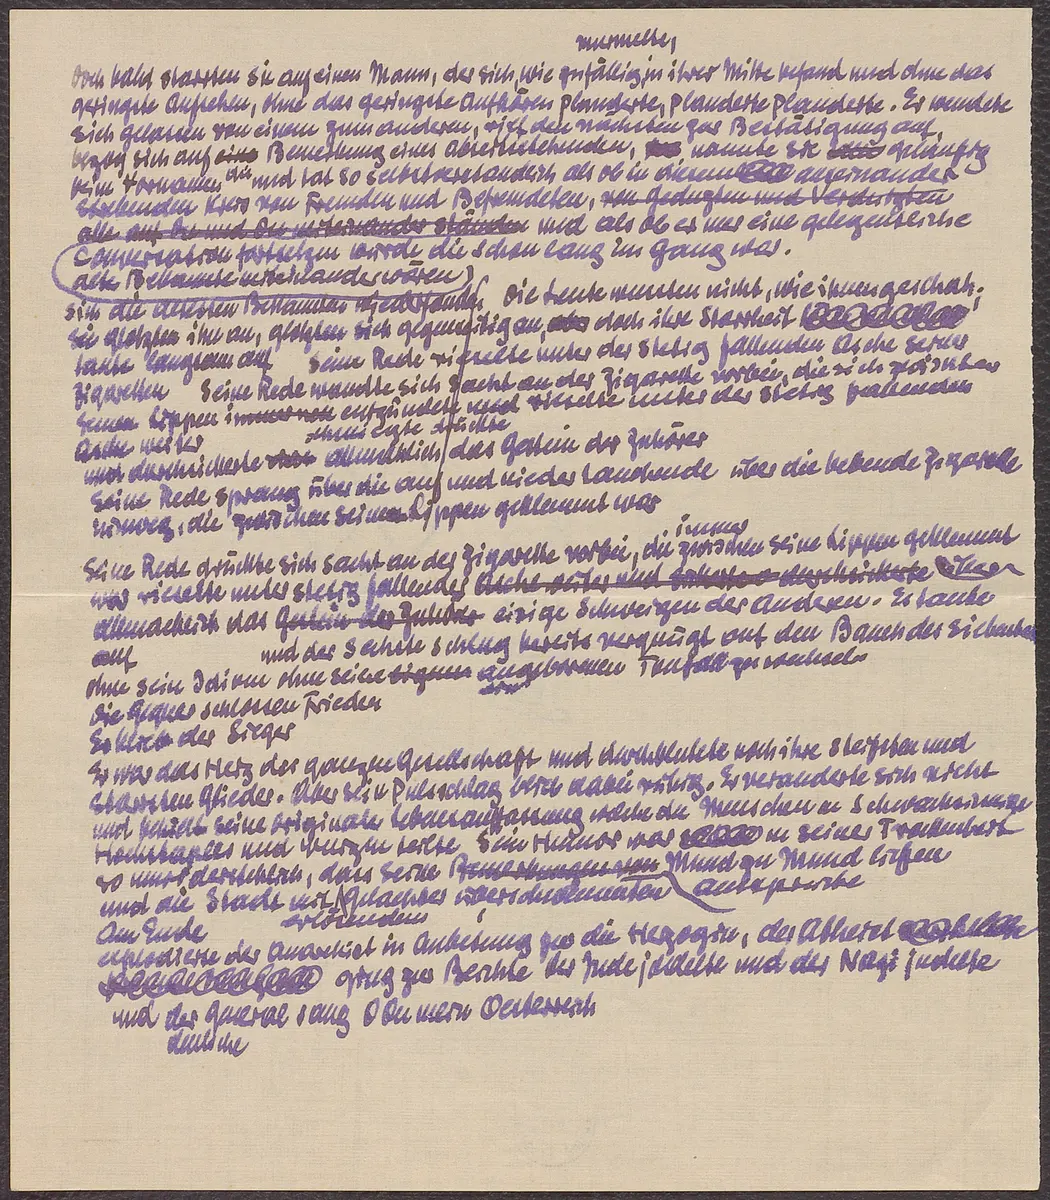 murmelte,
Doch bald starrten sie auf einen Mann, der sich, wie zufällig in ihrer Mitte befand und ohne das
geringste Aufsehen, ohne das geringste Aufhören plauderte, plauderte plauderte. Er wendete
sich gelassen von einem zum anderen, rief den nächsten zur Bestätigung auf,
bezog sich auf eine Bemerkung eines Abseitsstehenden, nannte sie geläufig
beim Vornamen und tat so selbstverständlich als ob in diesem aneinander
klebenden Kreis von Fremden und Befremdeten, von Geduzten und Verdutzten
alle auf Du und Du miteinander ständen und als ob er nur eine gelegentliche
Conversation fortsetzen würde die schon lang im Gang war.
alte Bekannte untereinander wären
sich die ältesten Bekannten Die Leute wussten nicht, wie ihnen geschah.
Sie glotzten ihn an, glotzten sich gegenseitig an, doch ihre Starrheit
taute langsam auf Seine Rede rieselte unter der stetig fallenden Asche seiner
Zigaretten Seine Rede wandte sich sacht an der Zigarette vorbei, die sich zwischen
seinen Lippen entzündete und rieselte unter der stetig fallenden
Asche weiter
und durchsickerte allmählich das Gestein der Zuhörer
Seine Rede sprang über die auf und nieder tanzende über die bebende Zigarette
hinweg, die zwischen seinen Lippen geklemmt war
immer
Seine Rede drückte sich sacht an der Zigarette vorbei, die zwischen seine Lippen geklemmt
war rieselte unter stetig fallender Asche weiter und durchsickerte
allmählich das Gestein der Zuhörer eisige Schweigen der Anderen. Er taute
auf und der Sechste schlug bereits vergnügt auf den Bauch des Siebenten
ohne sein Idiom ohne seinen eigenen angeborenen Tonfall zu wechseln
die Gegner schlossen Frieden
Er blieb der Sieger
Er war das Herz der ganzen Gesellschaft und durchblutete noch ihre steifsten und
starrsten Glieder. Aber sein Pulsschlag blieb dabei ruhig. Er veränderte sich nicht
und behielt seine originale Lebensauffassung welche die Menschen in Schwachsinnige
Hochstapler und Wurzen teilte Sein Humor war in seiner Trockenheit
so unwiderstehlich, dass seine Bemerkungen von Mund zu Mund liefen
und die Stadt mit Gelächter überschwemmten Aussprüche
Am Ende erlösendem
explodierte der Anarchist in Anbetung für die Herzogin, der Atheist
ging zur Beichte der Jude jodelte und der Nazi jüdelte
und der General sang O Du mein Oesterreich
deutsche